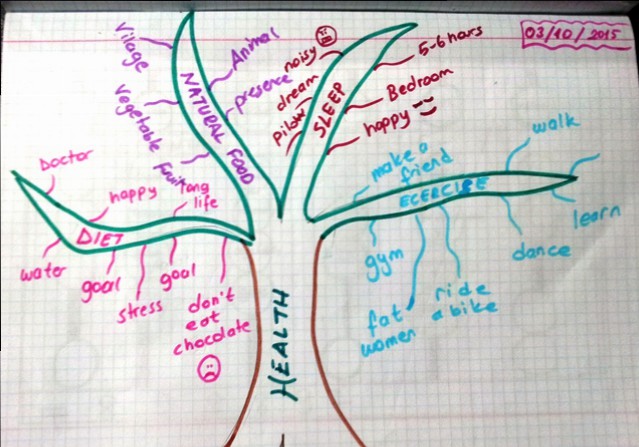 03/10/2015
Vilage
Vegetable
Fruit
NATURAL FOOD
Animal
presence
noisy
dream
pilow
SLEEP
5-6 hours
Bedroom
happy
Doctor
happy
long
life
DIET
water
goal
stress
goal
don't
eat
chocolate
make a
friend
walk
ECERCISE
learn
dance
gym
fat
women
ride
a bike
HEALTH